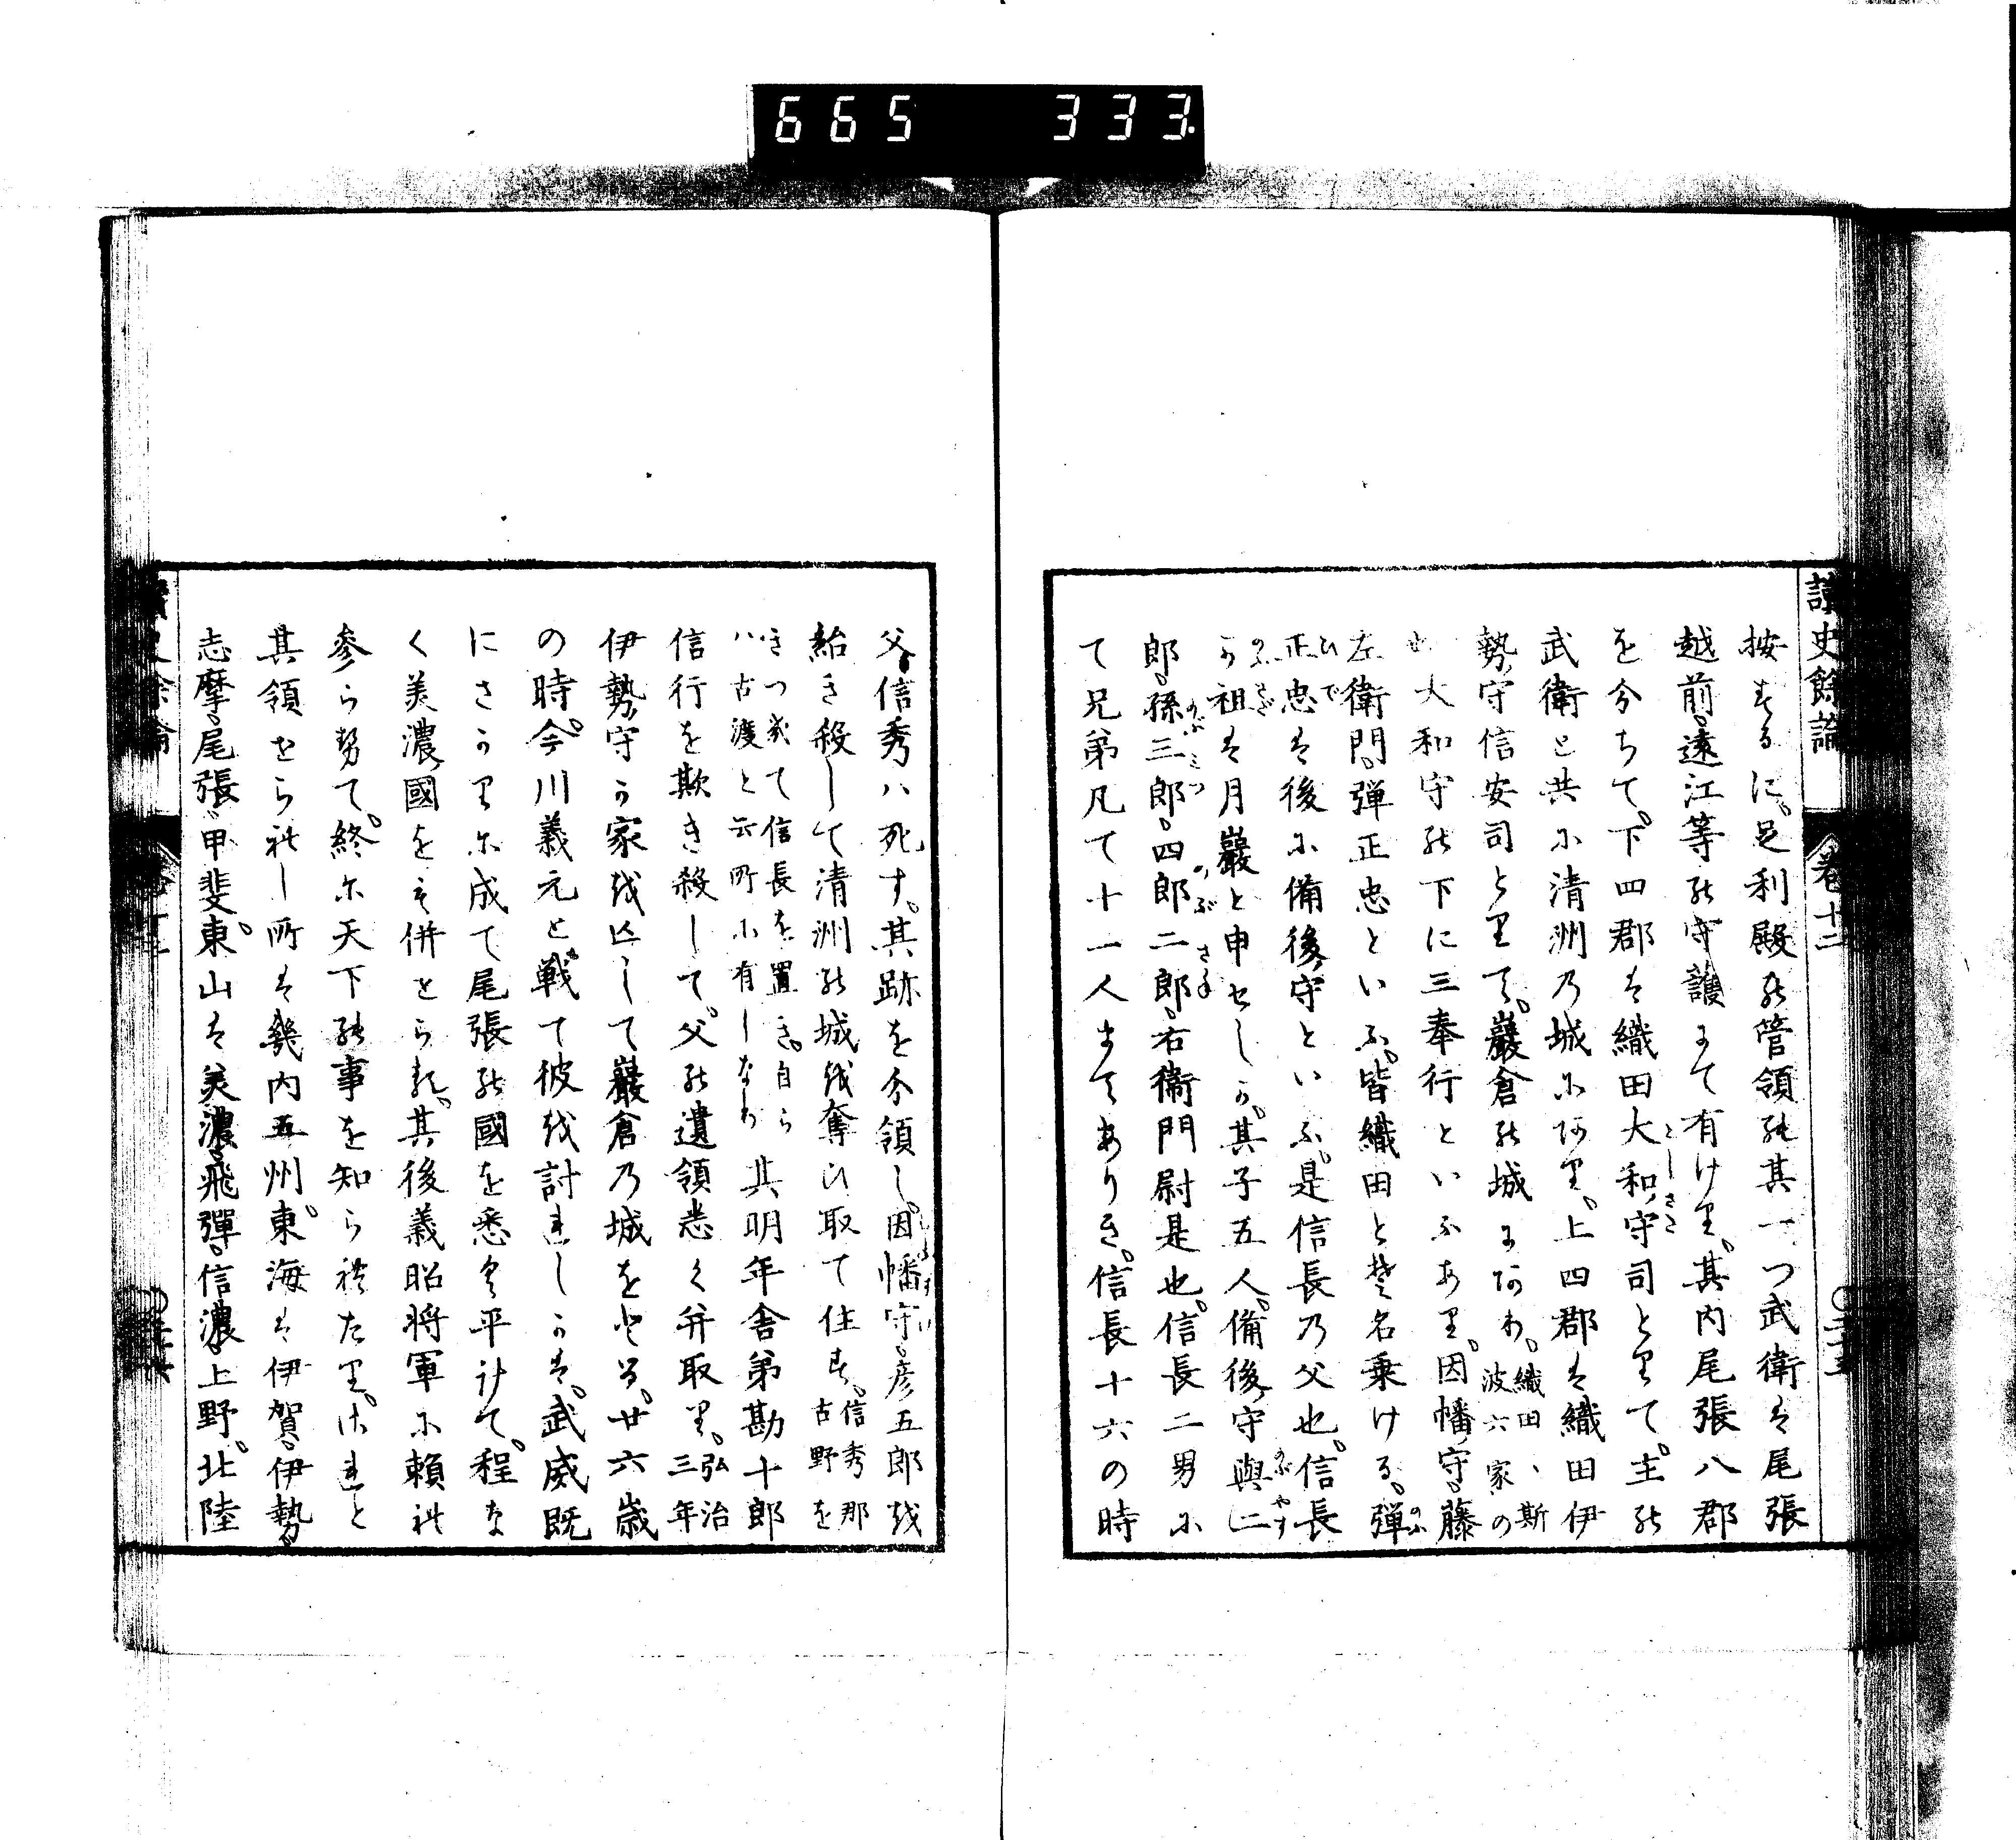 665 333
讀史餘論 卷十二
按するに。足利殿の管領の其一つ武衛は尾張
越前。遠江等の守護にて有けり。其内尾張八郡
を分ちて。下四郡は織田大和守司とりて。主の
武衛と共に清洲乃城にあり。上四郡は織田伊
勢守信安司とりて。巖倉の城にあり。織田ハ斯波六家の
也大和守の下に三奉行といふあり。因幡守。藤
左衛門。弾正忠といふ。皆織田とぞ名乗ける。弾
正忠は後に備後守といふ。是信長乃父也。信長
の祖は月巖と申セしか。其子五人。備後守與二
郎。孫三郎。四郎二郎。右衛門尉是也。信長二男に
て兄弟凡て十一人までありき。信長十六の時
父信秀ハ死す。其跡を分領し。因幡守。彦五郎を
紿き殺して清洲の城を奪ひ取て住す。信秀那古野を
きつ或て信長を置き。自ら
ハ古渡と云所に有しなり
其明年舎弟勘十郎
信行を欺き殺して。父の遺領悉く并取り。弘治三年
伊勢守の家を亡して巖倉乃城をとる。廿六歳
の時。今川義元と戦て彼を討れしかば。武威既
にさかりに成て尾張の國を悉く平けて。程な
く美濃國をも併せらる。其後義昭将軍に頼れ
参らせて。終に天下の事を知られたり。されど
其領せられし所は幾内五州。東海は伊賀。伊勢
志摩。尾張。甲斐。東山は美濃。飛彈。信濃。上野。北陸